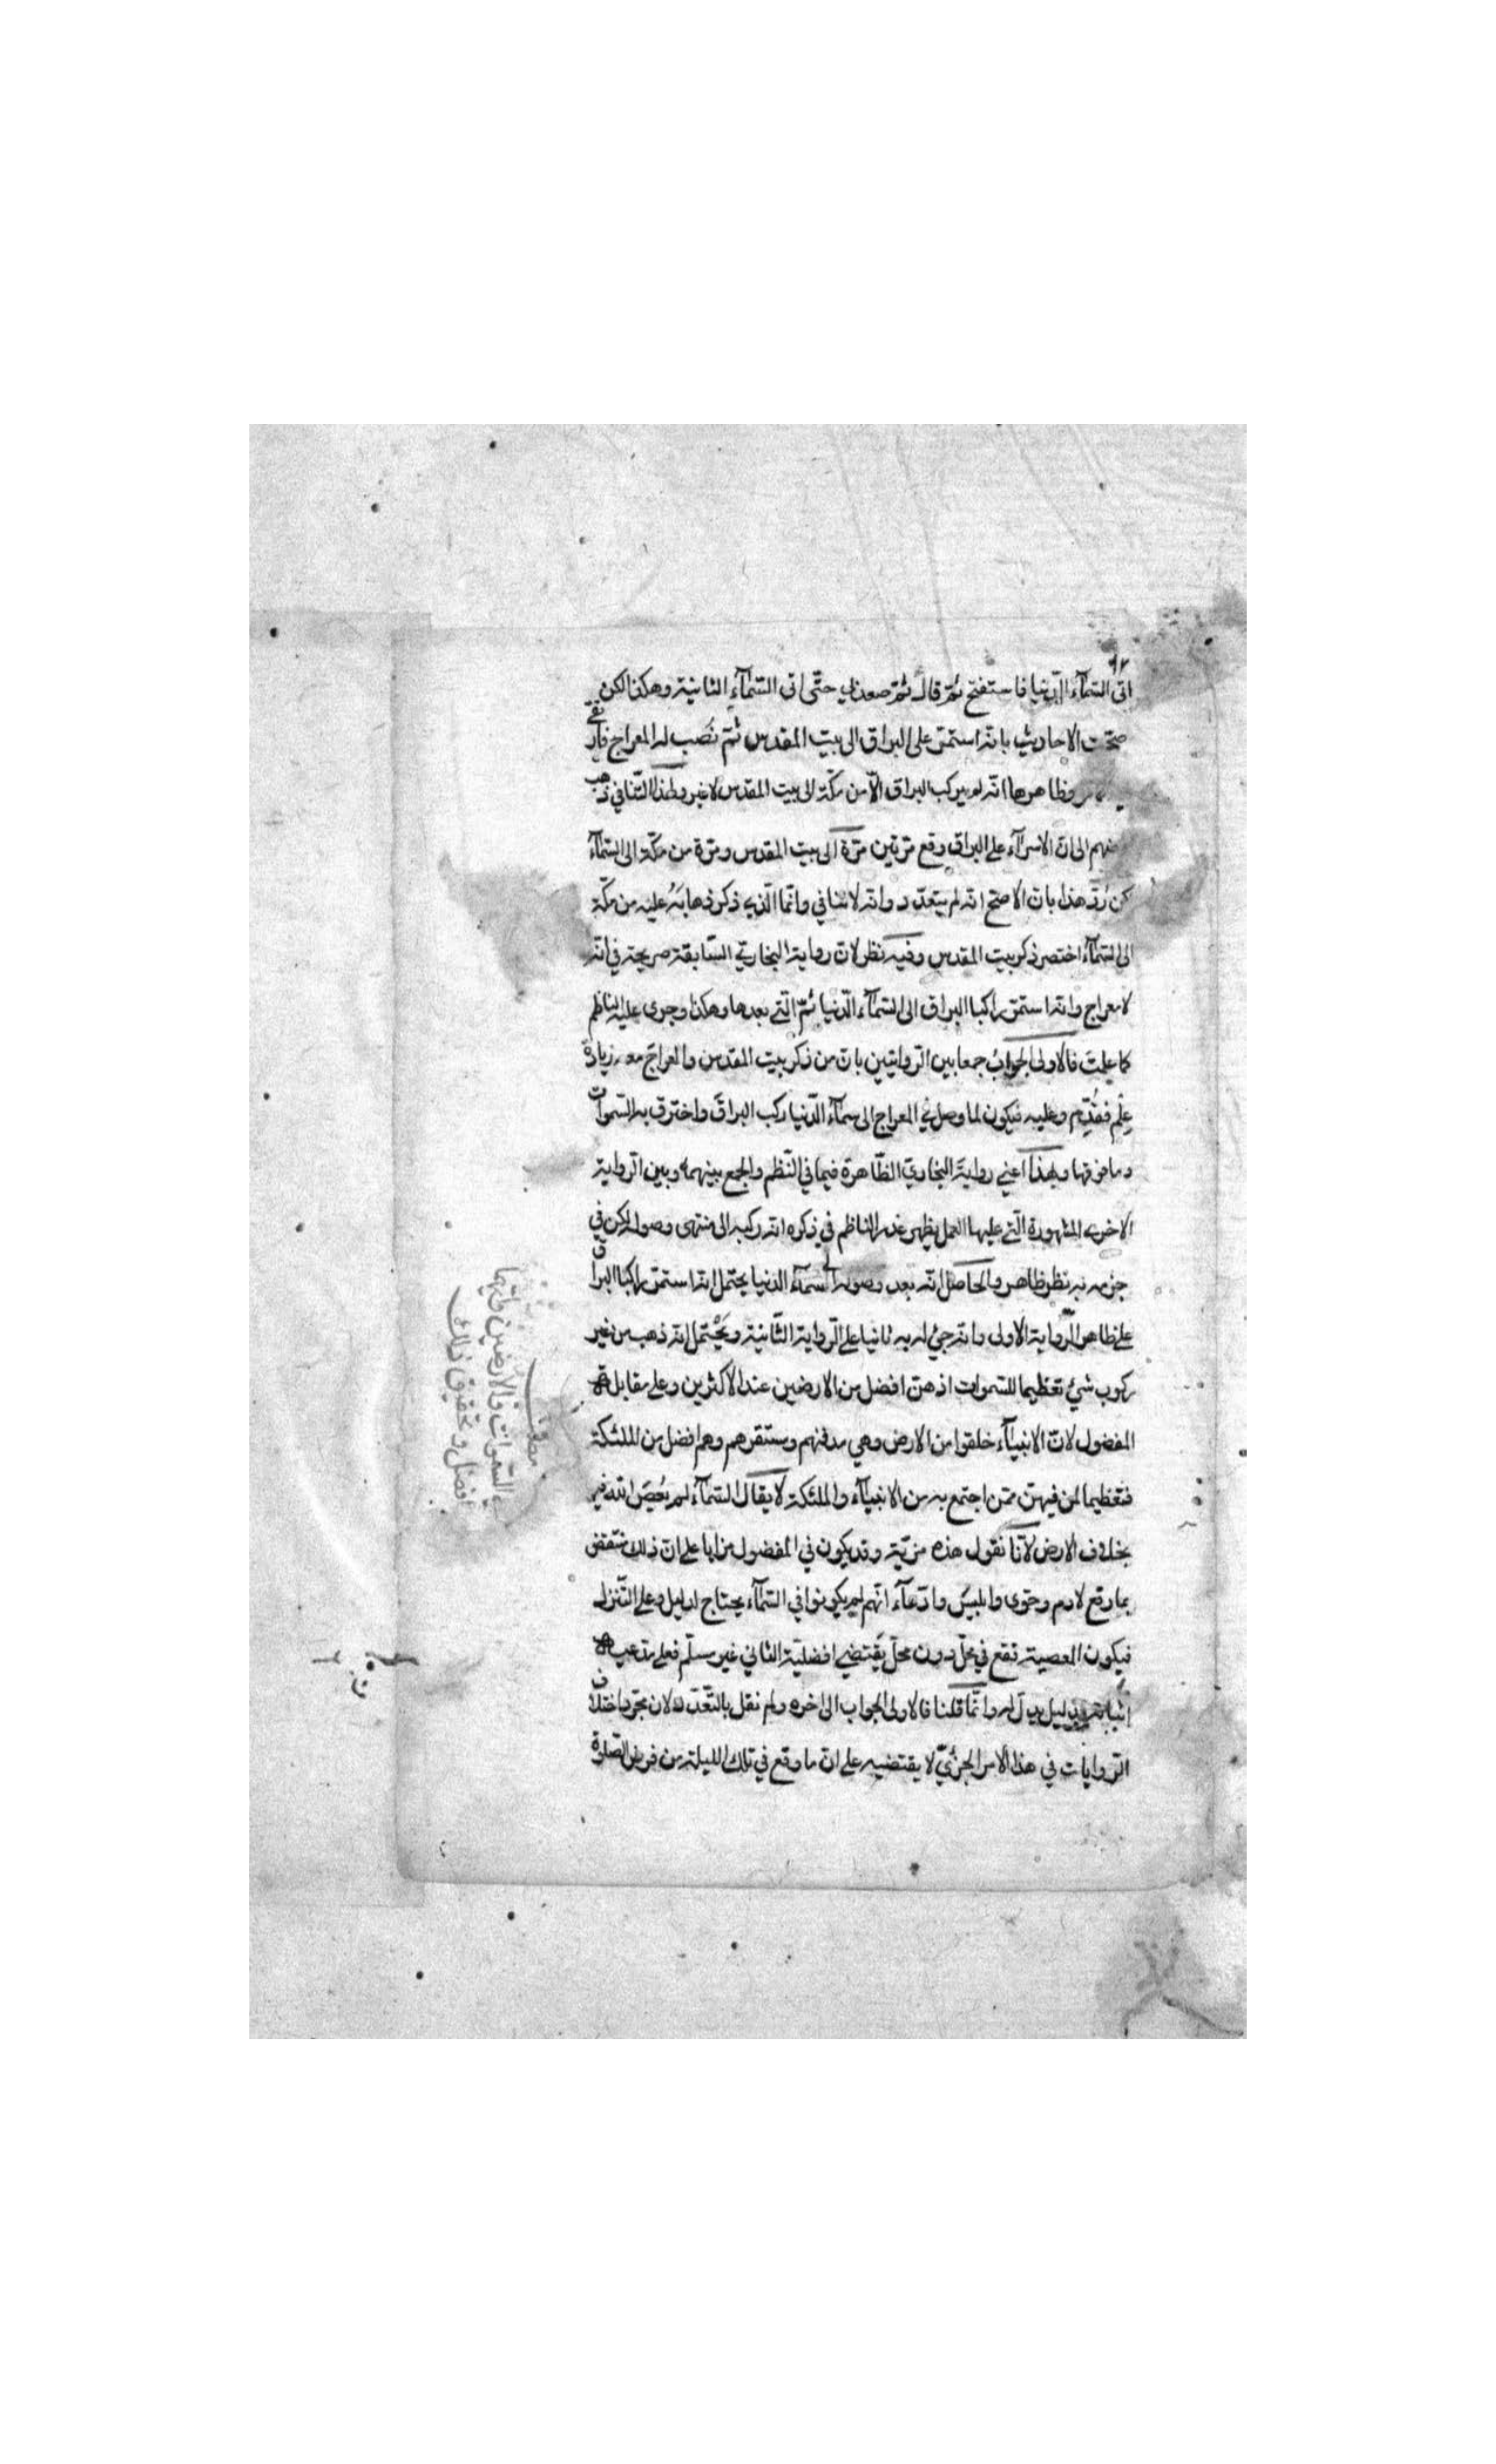 ٩٢
اتى السّمآء الدّنيا فاستفتح ثمّ قال ثمّ صعد بي حتّى اتى السّمآء الثانية وهكذا لكن
صحّت الاحاديث بانّه استمرّ على البراق الى بيت المقدس ثمّ نُصب له المعراج فارتقى
وظاهرها انّه لم يركب البراق الّا من مكّة الى بيت المقدس لا غير ولهذا التّنافي ذهب
بعضهم الى انّ الاسرآء على البراق وقع مرّتين مرّة الى بيت المقدس ومرّة من مكّة الى السّمآء
لكن رُدّ هذا بانّ الاصحّ انّه لم يتعدّد وانّه لا تنافي وانّما الّذي ذكر ذهابَهُ عليه من مكّة
الى السّمآء اختصر ذكر بيت المقدس وفيه نظر لانّ رواية البخاريّ السّابقة صريحة في انّه
لا معراج وانّه استمرّ راكبا البراق الى السّمآء الدّنيا ثمّ الّتي بعدها وهكذا وجرى عليه الناظم
كما علمت فالاولى الجوابُ جمعا بين الرّوايتين بانّ من ذكر بيت المقدس والمعراج معه زيادة
عِلْم فقُدّم وعليه فيكون لما وصل في المعراج الى سمآء الدّنيا ركب البراقَ واخترق به السّموات
وما فوقها وبهذا اعني روايةَ البخاريّ الظّاهرة فيما في النّظم والجمع بينهما وبين الرّواية
الاخرى المشهورة الّتي عليها العمل يظهر عذر الناظم في ذكره انّه ركبه الى منتهى وصوله لكن في
جزمه به نظر ظاهر والحاصل انّه بعد وصوله الى سمآء الدنيا يحتمل انّه استمرّ راكبا البراق
على ظاهر الرّواية الاولى وانّه جئ له به ثانيا على الرّواية الثّانية ويَحْتمل انّه ذهب من غير
ركوب شئ تعظيما للسّموات اذ هنّ افضل من الارضين عند الاكثرين وعلى مقابله
المفضول لانّ الانبيآء خلقوا من الارض وهي مدفنهم ومستقرهم وهم افضل من الملئكة
فتعظيما لمن فيهنّ ممّن اجتمع به من الانبيآء والملئكة لا يقال السّمآء لم يُعصَ اللّه فيها
بخلاف الارض لانّا نقول هذه مزيّة وقد يكون في المفضول مزايا على انّ ذلك منتقض
بما وقع لادم وحوى وابليسَ وادّعآء انّهم لم يكونوا في السّمآء يحتاج لدليل وعلى التّنزل
فيكون المعصية تقع في محلّ دون محلّ يقتضي افضليّة الثاني غير مسلّم فعلى مدّعيه
اثباته بدليل يدلّ له وانّما قلنا فالاولى الجواب الى اخره ولم نقل بالتّعدّد لانّ مجرّد اختلاف
الرّوايات في هذا الامر الجزئيّ لا يقتضيه على انّ ما وقع في تلك الليلة من فرض الصّلوة
مطلب
السّموات والارضين وايّهما
افضل وتحقيق ذلك